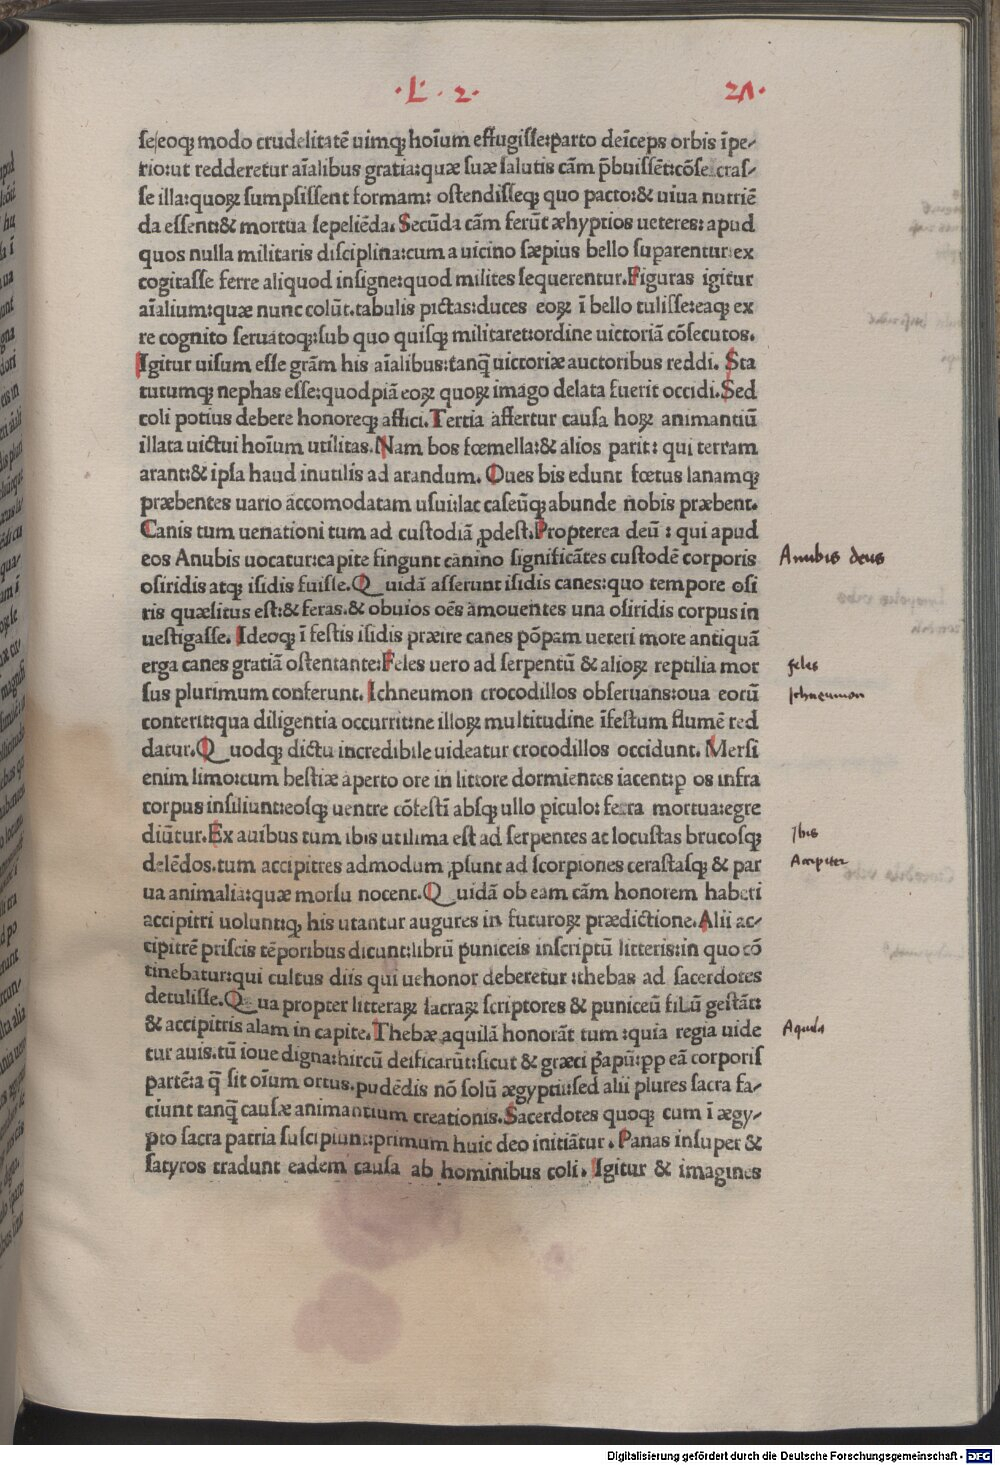 ·L· 2·
21·
se/eoqꝫ modo crudelitatē uimqꝫ hoīum effugisse:parto deīceps orbis īpe-
rio:ut redderetur aīalibus gratia:quæ suæ salutis cām p̄buissēt:cōse cras-
se illa:quoꝝ sumpsissent formam: ostendisseqꝫ quo pacto:& uiua nutriē
da essent:& mortua sepeliēda. Secūda cām ferūt æhyptios ueteres: apud
quos nulla militaris disciplina:cum a uicino sæpius bello superarentur:ex
cogitasse ferre aliquod insigne:quod milites sequerentur.Figuras igitur
aīalium:quæ nunc colūt.tabulis pictas:duces eoꝝ ī bello tulisse:eaqꝫ ex
re cognito seruatoqꝫ:sub quo quisqꝫ militaret:ordine uictoriā cōsecutos.
Igitur uisum esse grām his aīalibus:tanq̄ uictoriæ auctoribus reddi. Sta
tutumqꝫ nephas esse:quodpiā eoꝝ quoꝝ imago delata fuerit occidi.Sed
coli potius debere honoreqꝫ affici.Tertia affertur causa hoꝝ animantiū
illata uictui hoīum utilitas.Nam bos fœmella:& alios parit: qui terram
arant:& ipsa haud inutilis ad arandum. Oues bis edunt fœtus lanamqꝫ
præbentes uario accomodatam usui:lac caseūqꝫ abunde nobis præbent.
Canis tum uenationi tum ad custodiā ꝓdest.Propterea deū : qui apud
eos Anubis uocatur:capite fingunt canino significātes custodē corporis
osiridis atqꝫ isidis fuisse.Quidā asserunt isidis canes:quo tempore osi
ris quæsitus est:& feras.& obuios oēs amouentes una osiridis corpus in
uestigasse. Ideoqꝫ ī festis isidis præire canes pōpam ueteri more antiquā
erga canes gratiā ostentante:Feles uero ad serpentū & alioꝝ reptilia mor
sus plurimum conferunt. Ichneumon crocodillos obseruans:oua eorū
conterit:qua diligentia occurrit:ne illoꝝ multitudine īfestum flumē red
datur.Quodqꝫ dictu incredibile uideatur crocodillos occidunt. Mersi
enim limo:cum bestiæ aperto ore in littore dormientes iacent:ꝑ os infra
corpus insiliunt:eosqꝫ uentre cōfestī absqꝫ ullo piculo: fera mortua:egre
diūtur.Ex auibus tum ibis utilima est ad serpentes ac locustas brucosqꝫ
delēdos.tum accipitres admodum ꝓsunt ad scorpiones cerastasqꝫ & par
ua animalia:quæ morsu nocent.Quidā ob eam cām honorem haberi
accipitri uoluntqꝫ his utantur augures in futuroꝝ prædictione.Alii ac-
cipitrē priscis tēporibus dicunt:librū puniceis inscriptū litteris:in quo cō
tinebatur:qui cultus diis qui uehonor deberetur :thebas ad sacerdotes
detulisse.Qua propter litteraꝝ sacraꝝ scriptores & puniceū filū gestāt:
& accipitris alam in capite.Thebæ aquilā honorāt tum :quia regia uide
tur auis.tū ioue digna:hircū deificarūt:sicut & græci p̄apū:pp eā corporis
partē:a q̄ sit oīum ortus.pudēdis nō solū ægyptii:sed alii plures sacra fa-
ciunt tanq̄ causæ animantium creationis.Sacerdotes quoqꝫ cum ī ægy-
pto sacra patria suscipiunt:primum huic deo initiātur. Panas insuper &
satyros tradunt eadem causa ab hominibus coli. Igitur & imagines
Anubis deus
feles
Ichneumon
Ibis
Accipiter
Aquila
Digitalisierung gefördert durch die Deutsche Forschungsgemeinschaft - DFG